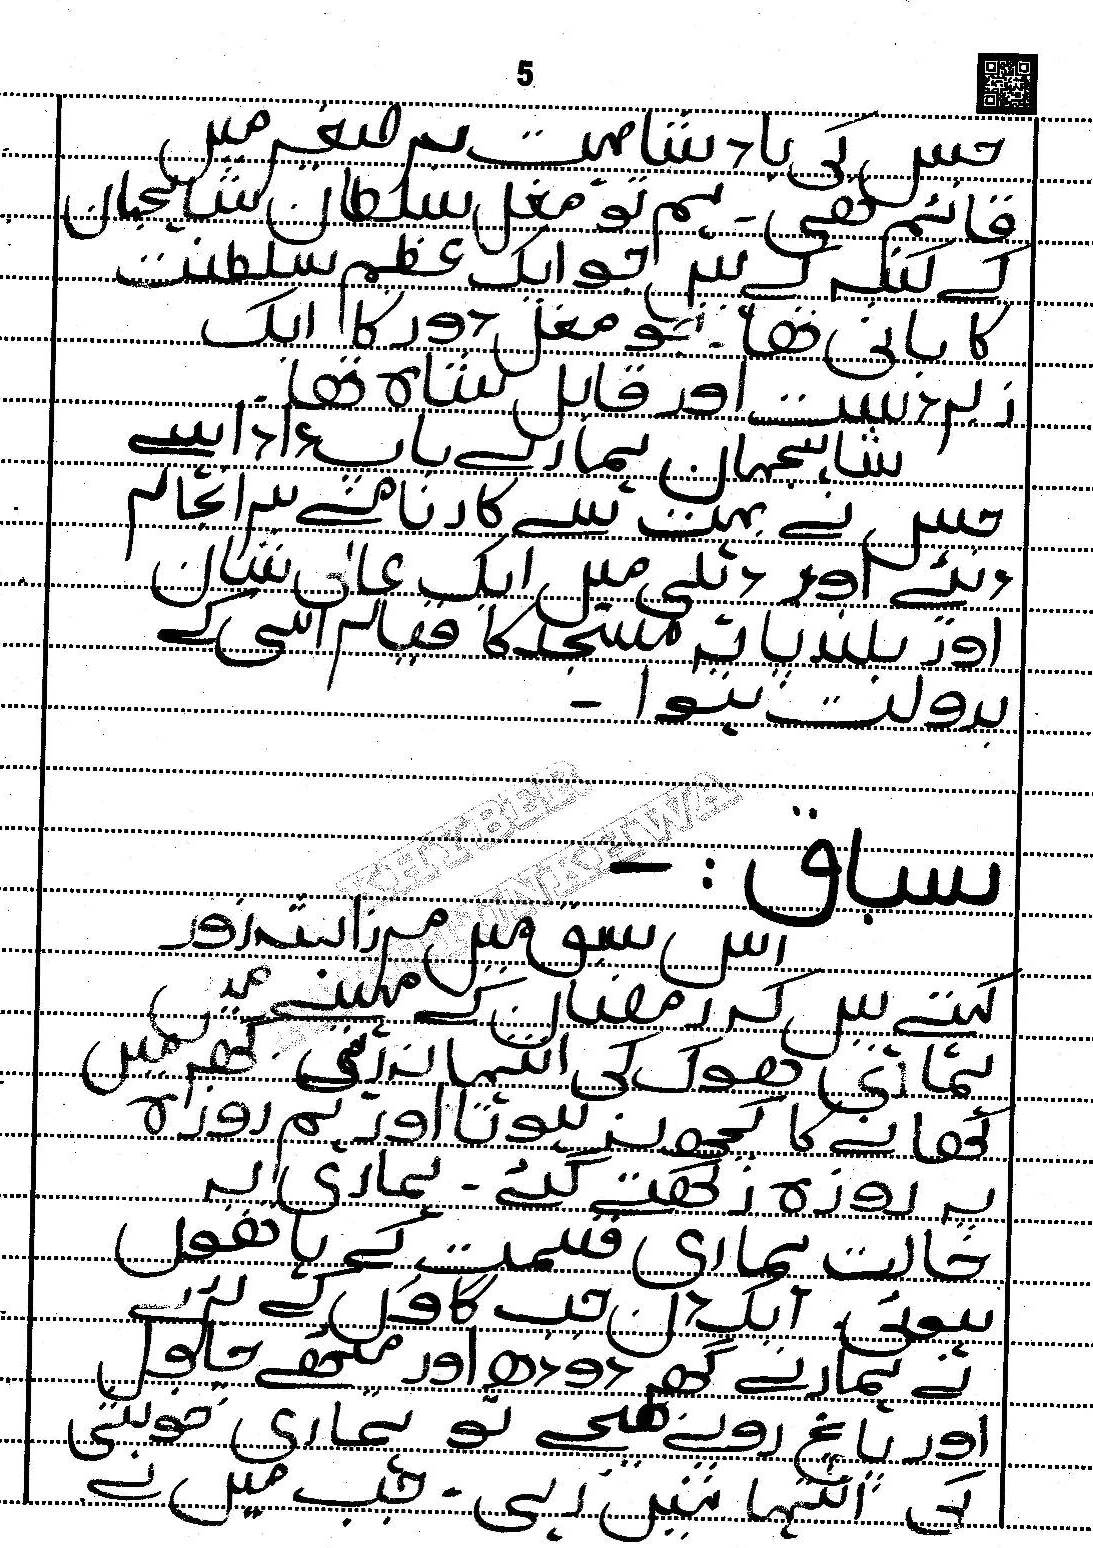 5
جس کی بادشاہت برصغیر میں
قائم تھی ۔ ہم تو مغل سلطان شاہجہان
کے کنبہ کے ہیں جو ایک عظیم سلطنت
کا بانی تھا ۔ جو مغل دور کا ایک
زبردست اور قابل شاہ تھا ۔
شاہجہان ہمارے باپ دادا سے
جس نے بہت سے کارنامے سرانجام
دئیے اور دہلی میں ایک عالی شان
اور بلند پایہ مسجد کا قیام اسی کے
بدولت ہوا ۔
سباق : ـ
اس سبق میں مرزا شہ زور
کہتے ہیں کہ رمضان کے مہینے میں
ہماری بھوک کی انتہا نہ رہی گھر میں
کھانے کا کچھ نہ ہوتا اور ہم روزہ
پہ روزہ رکھتے گئے ۔ ہماری یہ
حالت ہماری قسمت کے ہاتھوں
ہوئی ۔ ایک دن جب گاؤں کے
نے ہمارے گھر دودھ اور میٹھے چاول
اور پانچ روپے تو ہماری خوشی
کی انتہا نہیں رہی ۔ جب میں نے
KHYBER